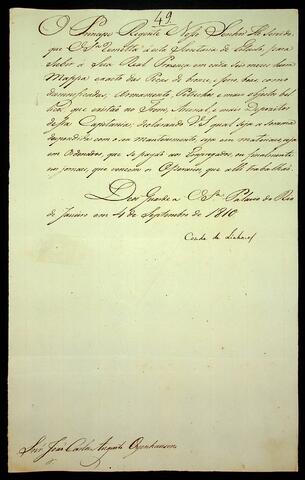 49
O Principe Regente Nosso Senhor He Servido,
que V. S.ª remetta á esta Secretaria de Estado, para
subir á Sua Real Presença em cada seis mezes hum
Mappa exacto das Peças de bronze, e ferro boas, como
desmontadas, Armamento, Petrechos, e mais objectos bel-
licos, que existão no Trem, Arsenal, e mais Depozitos
dessa Capitania; declarando V. S. qual seja a somma
despendida com o seu mantimento, seja em materiaes, seja
em Ordenados, que se pagão aos Empregados, ou finalmente
no jornal, que vencem os Operarios, que alli trabalhão.
Deos Guarde a V. S.ª Palacio do Rio
de Janeiro em 4 de Septembro de 1810
Conde de Linhares
Snr. João Carlos Augusto Oyenhausen